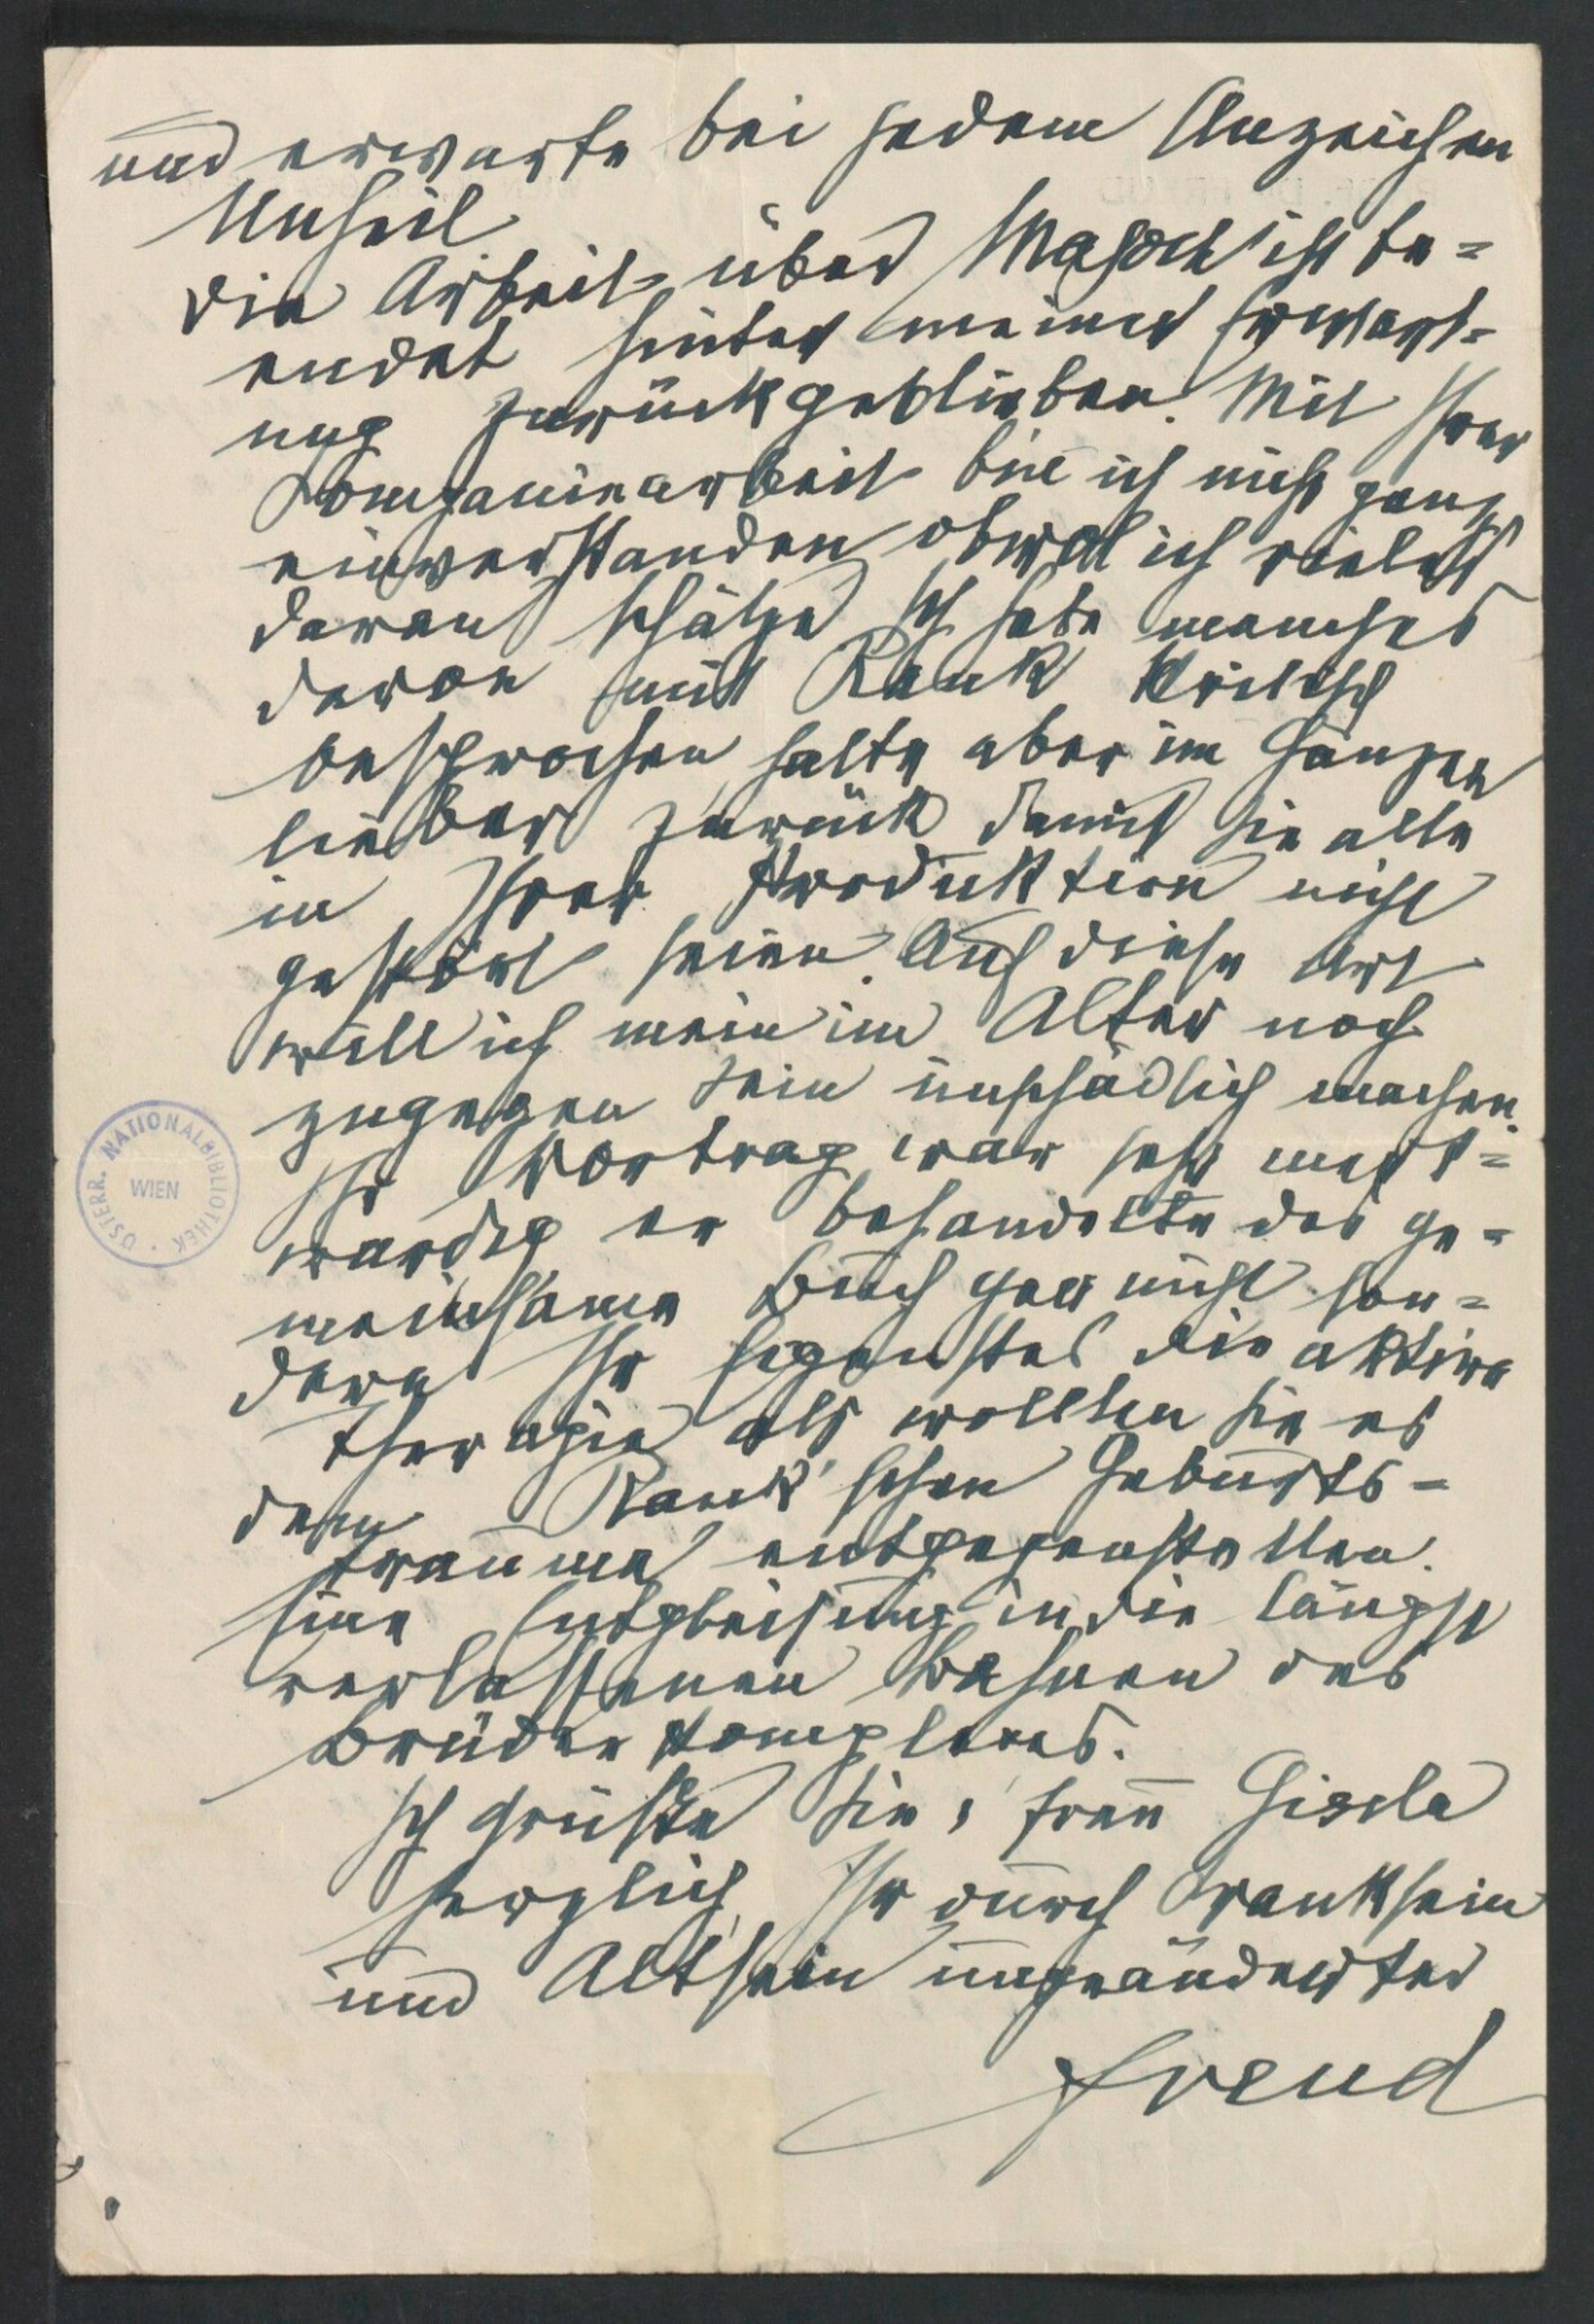 und erwarte bei jedem Anzeichen
Unheil
die Arbeit über Masoch ist be=
endet hinter meiner Erwart=
ung zurückgeblieben. Mit Ihrer
Kompaniearbeit bin ich nicht ganz
einverstanden obwol ich vieles
daran schätze Ich habe manches
davon mit Rank kritisch
besprochen, halte aber im Ganzen
lieber zurück damit Sie alle
in Ihrer Produktion nicht
gestört seien. Auf diese Art
will ich mein im Alter noch
zugegen sein unschädlich machen.
Ihr Vortrag war sehr merk=
würdig er behandelte das ge=
meinsame Buch gar nicht son=
dern Ihr Eigenstes die aktive
Therapie als wollten Sie es
dem Rank'schen Geburts=
trauma entgegenstellen.
Eine Entgleisung in die längst
verlassenen Bahnen des
Bruderkomplexes.
Ich grüße Sie, Frau Gisela
herzlich, Ihr durch Kranksein
und Altsein ungeänderter
Freud
ÖSTERR. NATIONALBIBLIOTHEK
WIEN